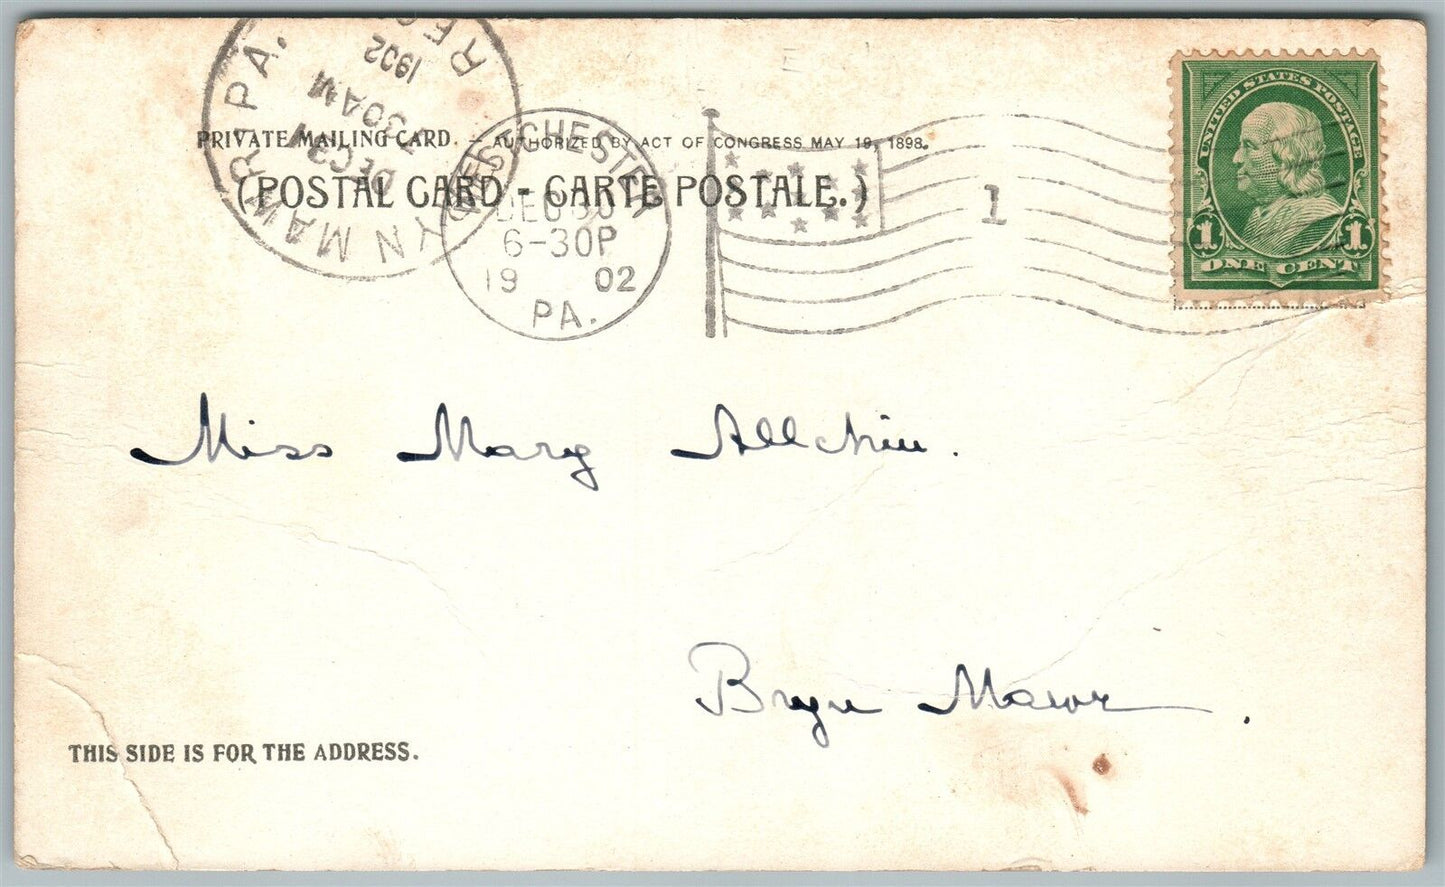 BRYN MAWR PA.
DEC 31
7 30AM
1902
REC'D
PRIVATE MAILING CARD. – AUTHORIZED BY ACT OF CONGRESS MAY 19, 1898.
(POSTAL CARD - CARTE POSTALE.)
WESTCHESTER
DEC 30
6-30P
19 02
PA.
1
UNITED STATES POSTAGE
1 1
ONE CENT
Miss Mary Allchin.
Bryn Mawr.
THIS SIDE IS FOR THE ADDRESS.